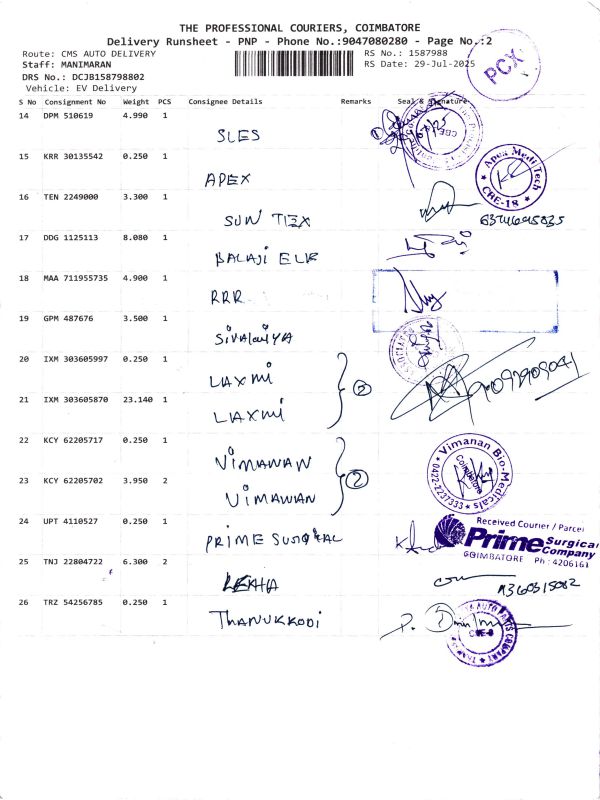 THE PROFESSIONAL COURIERS, COIMBATORE
Delivery Runsheet - PNP - Phone No.:9047080280 - Page No.:2
Route: CMS AUTO DELIVERY
RS No.: 1587988
Staff: MANIMARAN
RS Date: 29-Jul-2025
DRS No.: DCJB158798802
Vehicle: EV Delivery
PCX
S No Consignment No Weight PCS Consignee Details Remarks Seal & Signature
14 DPM 510619 4.990 1
SLES
15 KRR 30135542 0.250 1
APEX
Apex Medi Tech
CBE-18
16 TEN 2249000 3.300 1
SUN TEX
17 DDG 1125113 8.080 1
BALAJI ELE
18 MAA 711955735 4.900 1
RRR
19 GPM 487676 3.500 1
20 IXM 303605997 0.250 1
LAXMI
21 IXM 303605870 23.140 1
LAXMI
22 KCY 62205717 0.250 1
VIMAWAN
Vimanan Bio-Medicals
Coimbatore
0422-2237333
23 KCY 62205702 3.950 2
VIMAWAN
2
24 UPT 4110527 0.250 1
PRIME
Received Courier / Parcel
Prime Surgical Company
COIMBATORE Ph : 4206161
25 TNJ 22804722 6.300 2
LEKHA
26 TRZ 54256785 0.250 1
THANUKKODI